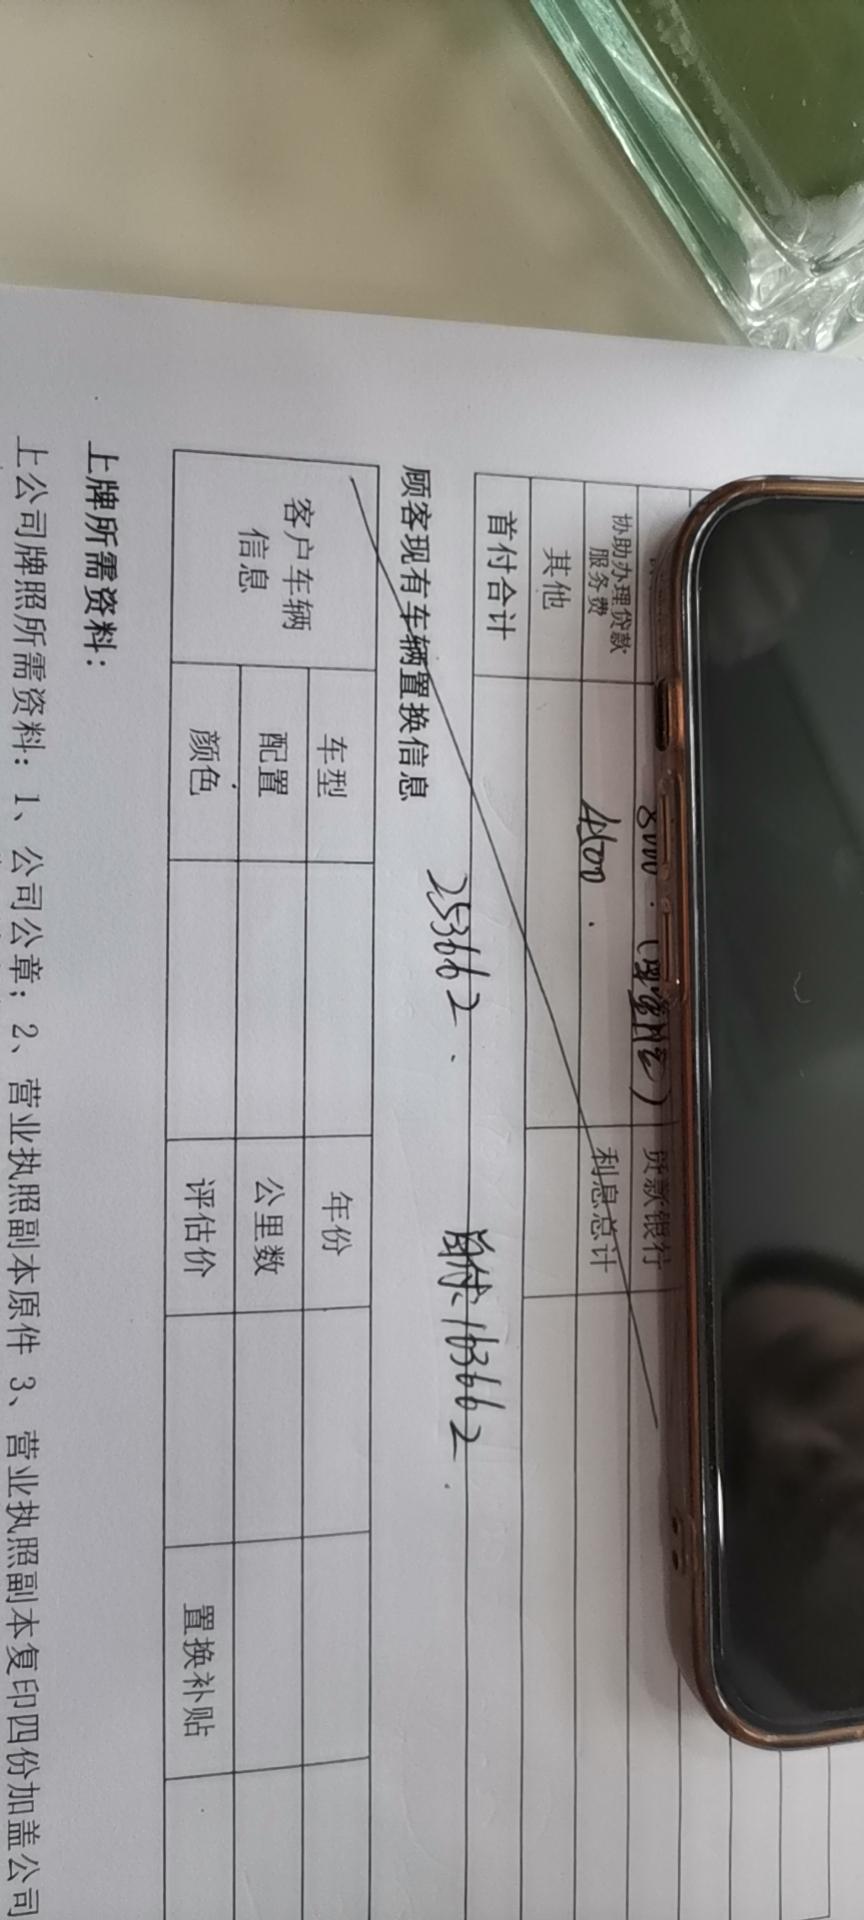 8000.
贷款银行
协助办理贷款服务费 4500. 利息总计
其他
首付合计
253662. 首付：163662.
顾客现有车辆置换信息
客户车辆信息 车型 年份
配置 公里数
颜色 评估价 置换补贴
上牌所需资料：
上公司牌照所需资料：1、公司公章；2、营业执照副本原件 3、营业执照副本复印四份加盖公司